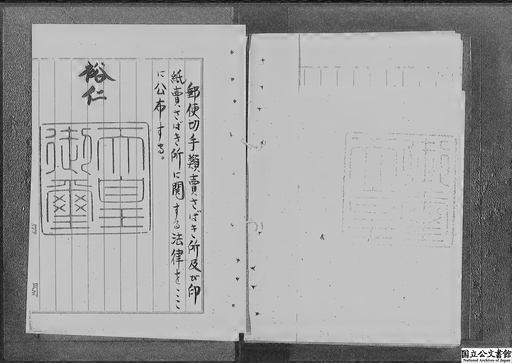 郵便切手類賣さばき所及び印
紙賣さばき所に関する法律をここ
に公布する。
裕仁
天皇
御璽
国立公文書館
National Archives of Japan